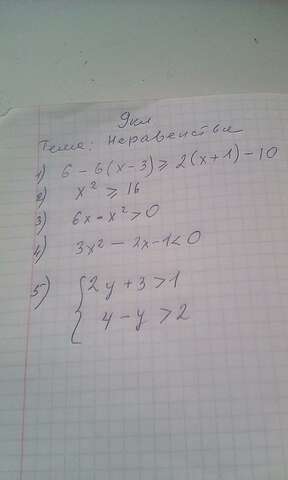 9кл
Тема: Неравенства
1) 6 - 6(x-3) ≥ 2(x+1) - 10
2) x² ≥ 16
3) 6x - x² > 0
4) 3x² - 2x - 1 < 0
5) { 2y + 3 > 1
4 - y > 2